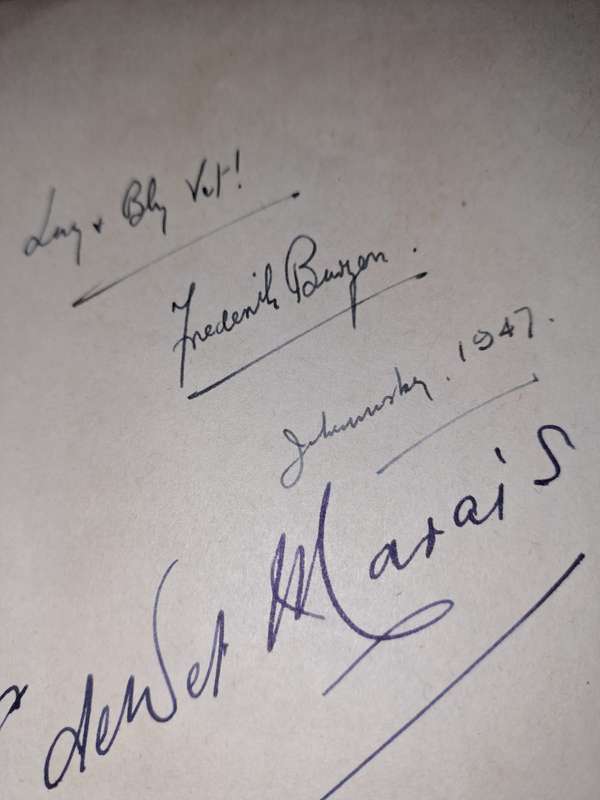 Lag + Bly Vet!
Frederik Burgers.
Johannesburg. 1947.
de Wet Marais